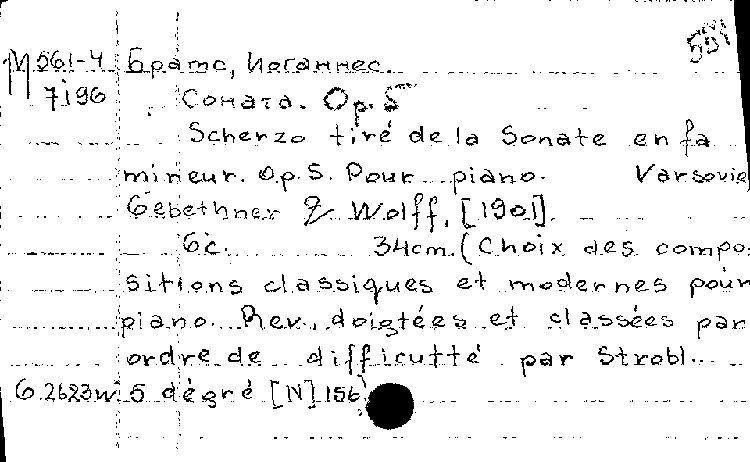 551
М 561-4 Брамс, Иоганнес.
7196 Соната. Op. 5
Scherzo tiré de la Sonate en fa
mineur. Op. 5. Pour piano. Varsovie
Gebethner & Wolff, [1901].
6с. 34cm. (Choix des compo-
sitions classiques et modernes pour
piano. Rev., doigtées et classées par
ordre de difficutté par Strobl.
6.2623м 5 dégré [N] 156)